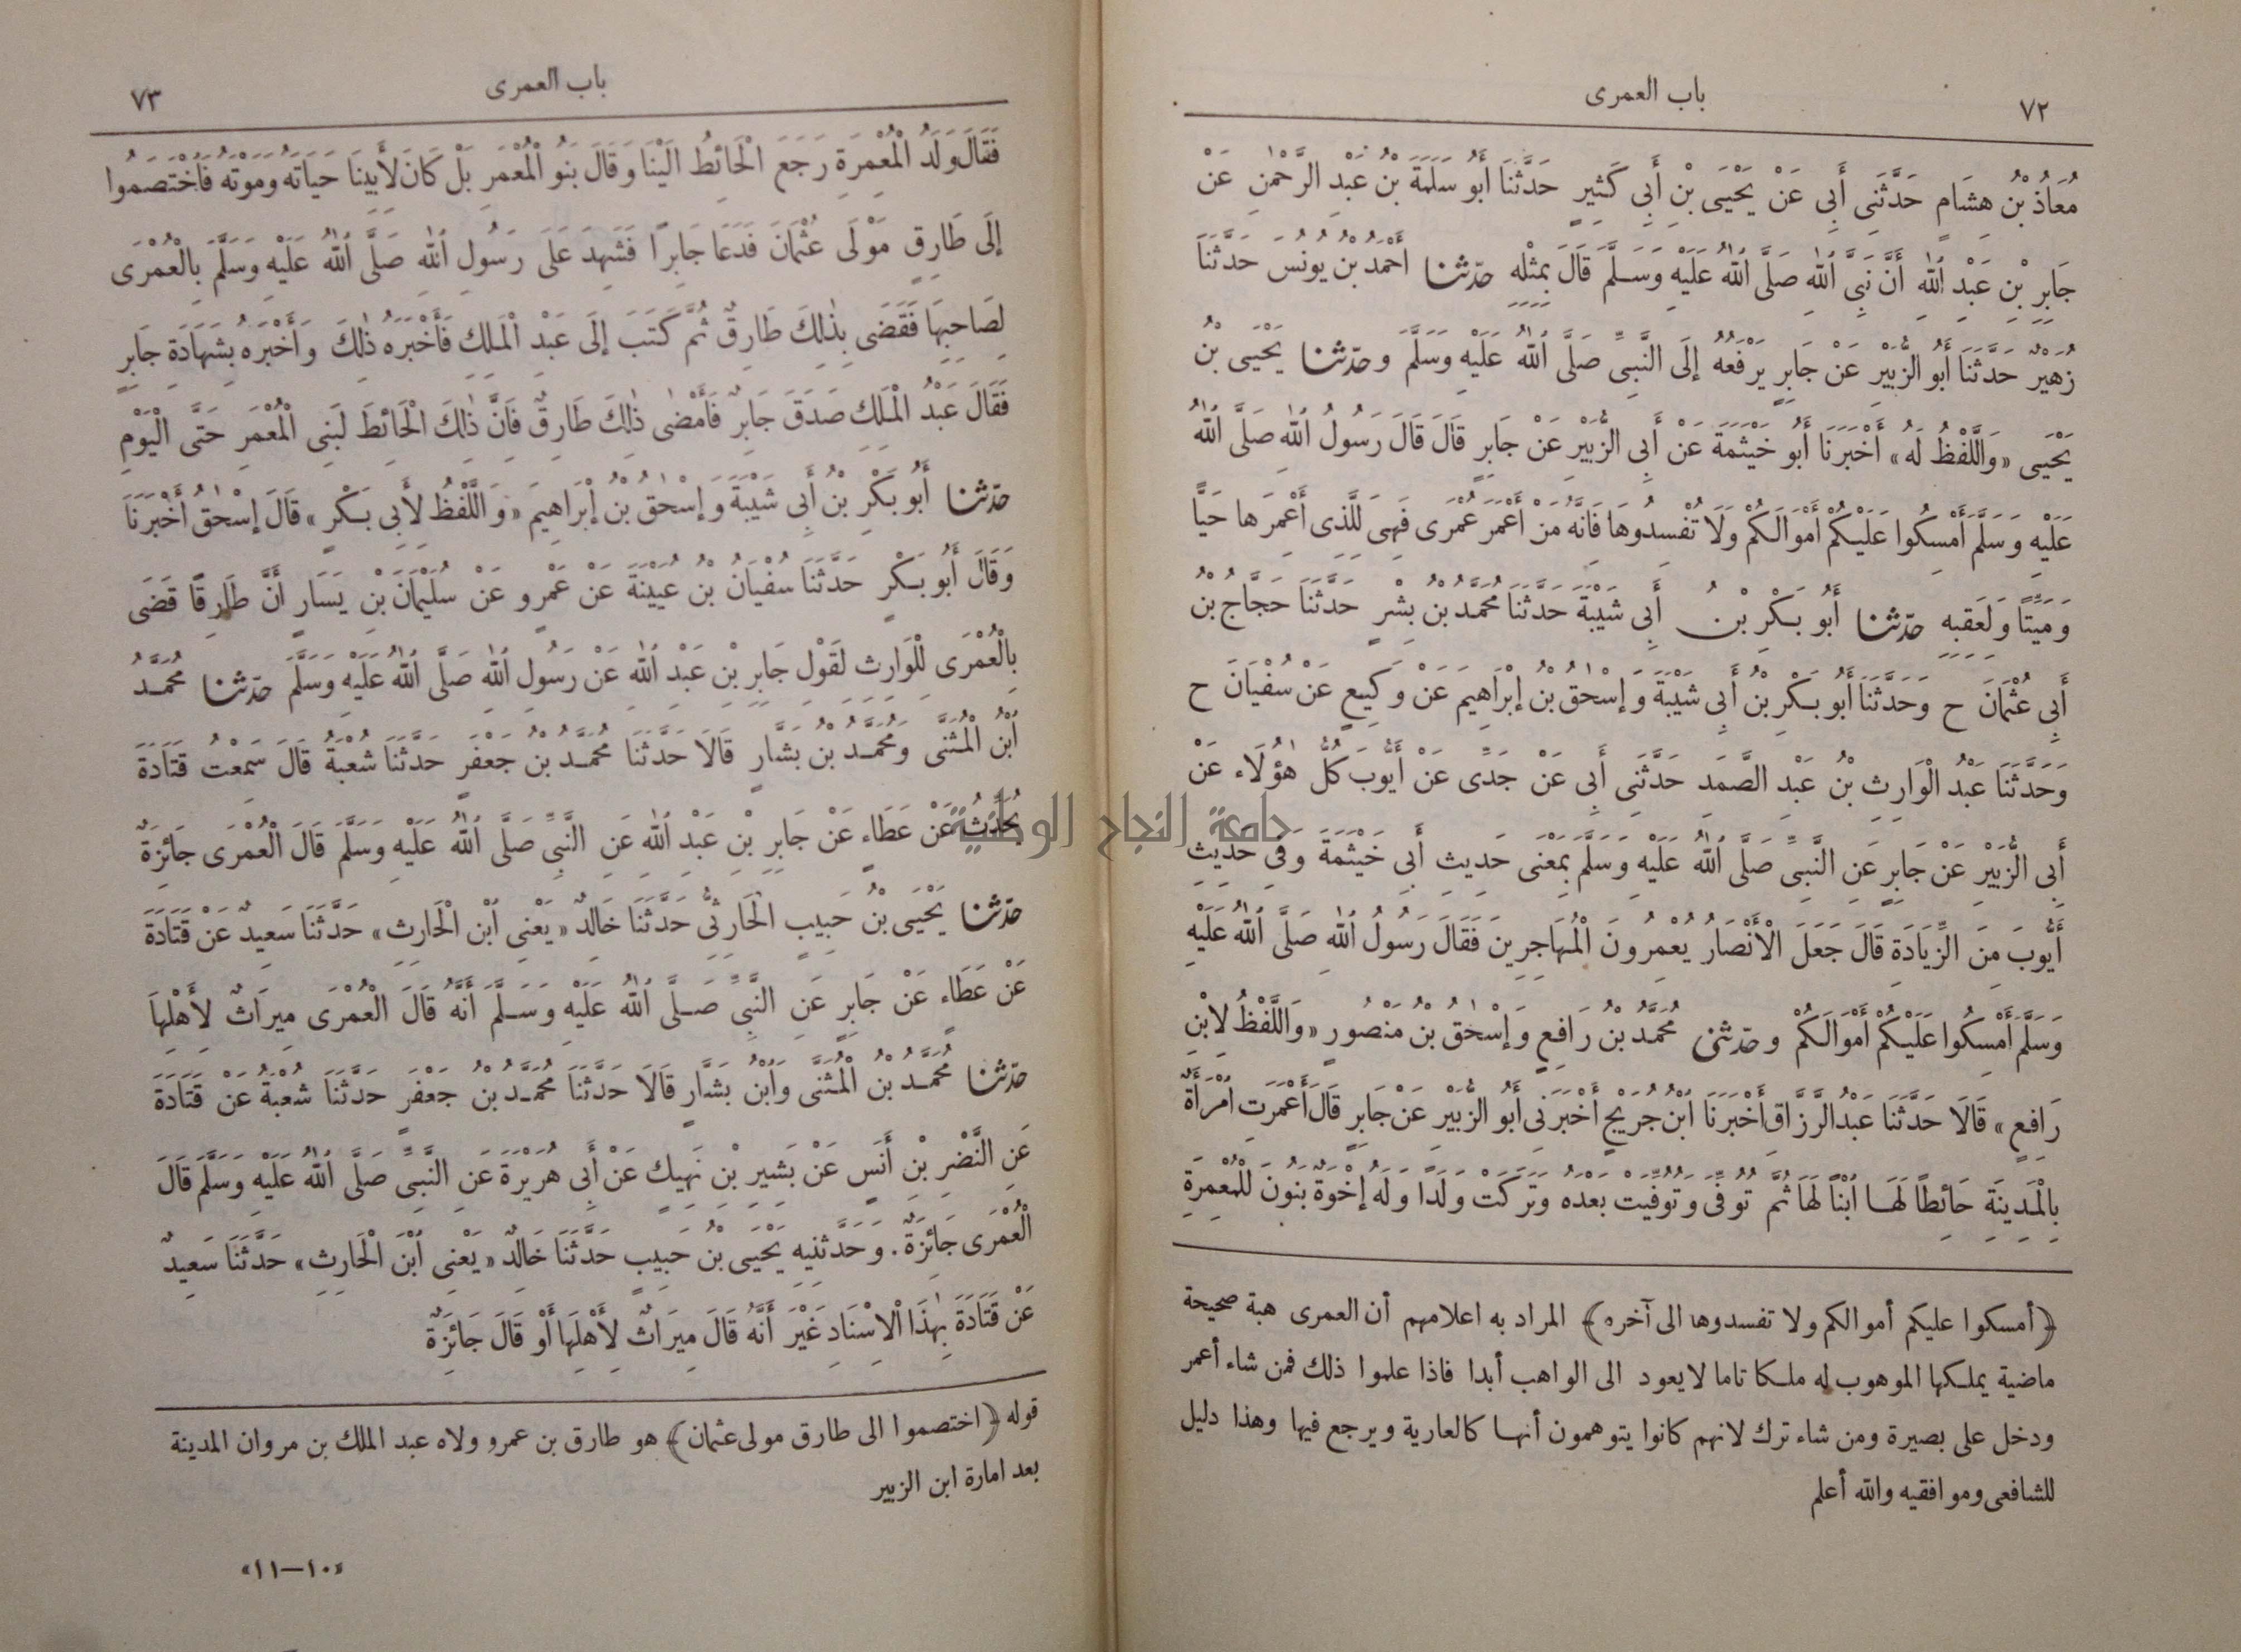 باب العمرى
٧٢
مُعَاذُ بْنُ هِشَامٍ حَدَّثَنِى أَبِى عَنْ يَحْيَى بْنِ أَبِى كَثِيرٍ حَدَّثَنَا أَبُو سَلَمَةَ بْنُ عَبْدِ الرَّحْمٰنِ عَنْ
جَابِرِ بْنِ عَبْدِ اللّٰهِ أَنَّ نَبِىَّ اللّٰهِ صَلَّى اللّٰهُ عَلَيْهِ وَسَلَّمَ قَالَ بِمِثْلِهِ حدّثنا أَحْمَدُ بْنُ يُونُسَ حَدَّثَنَا
زُهَيْرٌ حَدَّثَنَا أَبُو الزُّبَيْرِ عَنْ جَابِرٍ يَرْفَعُهُ إِلَى النَّبِىِّ صَلَّى اللّٰهُ عَلَيْهِ وَسَلَّمَ وحدّثنا يَحْيَى بْنُ
يَحْيَى «وَاللَّفْظُ لَهُ» أَخْبَرَنَا أَبُو خَيْثَمَةَ عَنْ أَبِى الزُّبَيْرِ عَنْ جَابِرٍ قَالَ قَالَ رَسُولُ اللّٰهِ صَلَّى اللّٰهُ
عَلَيْهِ وَسَلَّمَ أَمْسِكُوا عَلَيْكُمْ أَمْوَالَكُمْ وَلَا تُفْسِدُوهَا فَإِنَّهُ مَنْ أَعْمَرَ عُمْرَى فَهِىَ لِلَّذِى أُعْمِرَهَا حَيًّا
وَمَيِّتًا وَلِعَقِبِهِ حدّثنا أَبُو بَكْرِ بْنُ أَبِى شَيْبَةَ حَدَّثَنَا مُحَمَّدُ بْنُ بِشْرٍ حَدَّثَنَا حَجَّاجُ بْنُ
أَبِى عُثْمَانَ ح وَحَدَّثَنَا أَبُو بَكْرِ بْنُ أَبِى شَيْبَةَ وَإِسْحٰقُ بْنُ إِبْرَاهِيمَ عَنْ وَكِيعٍ عَنْ سُفْيَانَ ح
وَحَدَّثَنَا عَبْدُ الْوَارِثِ بْنُ عَبْدِ الصَّمَدِ حَدَّثَنِى أَبِى عَنْ جَدِّى عَنْ أَيُّوبَ كُلُّ هٰؤُلَاءِ عَنْ
أَبِى الزُّبَيْرِ عَنْ جَابِرٍ عَنِ النَّبِىِّ صَلَّى اللّٰهُ عَلَيْهِ وَسَلَّمَ بِمَعْنَى حَدِيثِ أَبِى خَيْثَمَةَ وَفِى حَدِيثِ
أَيُّوبَ مِنَ الزِّيَادَةِ قَالَ جَعَلَ الْأَنْصَارُ يُعْمِرُونَ الْمُهَاجِرِينَ فَقَالَ رَسُولُ اللّٰهِ صَلَّى اللّٰهُ عَلَيْهِ
وَسَلَّمَ أَمْسِكُوا عَلَيْكُمْ أَمْوَالَكُمْ وحدّثنى مُحَمَّدُ بْنُ رَافِعٍ وَإِسْحٰقُ بْنُ مَنْصُورٍ «وَاللَّفْظُ لِابْنِ
رَافِعٍ» قَالَا حَدَّثَنَا عَبْدُ الرَّزَّاقِ أَخْبَرَنَا ابْنُ جُرَيْجٍ أَخْبَرَنِى أَبُو الزُّبَيْرِ عَنْ جَابِرٍ قَالَ أَعْمَرَتِ امْرَأَةٌ
بِالْمَدِينَةِ حَائِطًا لَهَا ابْنًا لَهَا ثُمَّ تُوُفِّىَ وَتُوُفِّيَتْ بَعْدَهُ وَتَرَكَتْ وَلَدًا وَلَهُ إِخْوَةٌ بَنُونَ لِلْمُعْمِرَةِ
﴿أمسكوا عليكم أموالكم ولا تفسدوها الى آخره﴾ المراد به اعلامهم أن العمرى هبة صحيحة
ماضية يملكها الموهوب له ملكا تاما لا يعود الى الواهب أبدا فاذا علموا ذلك فمن شاء أعمر
ودخل على بصيرة ومن شاء ترك لانهم كانوا يتوهمون أنها كالعارية ويرجع فيها وهذا دليل
للشافعى وموافقيه والله أعلم
باب العمرى
٧٣
فَقَالَ وَلَدُ الْمُعْمِرَةِ رَجَعَ الْحَائِطُ إِلَيْنَا وَقَالَ بَنُو الْمُعْمَرِ بَلْ كَانَ لِأَبِينَا حَيَاتَهُ وَمَوْتَهُ فَاخْتَصَمُوا
إِلَى طَارِقٍ مَوْلَى عُثْمَانَ فَدَعَا جَابِرًا فَشَهِدَ عَلَى رَسُولِ اللّٰهِ صَلَّى اللّٰهُ عَلَيْهِ وَسَلَّمَ بِالْعُمْرَى
لِصَاحِبِهَا فَقَضَى بِذٰلِكَ طَارِقٌ ثُمَّ كَتَبَ إِلَى عَبْدِ الْمَلِكِ فَأَخْبَرَهُ ذٰلِكَ وَأَخْبَرَهُ بِشَهَادَةِ جَابِرٍ
فَقَالَ عَبْدُ الْمَلِكِ صَدَقَ جَابِرٌ فَأَمْضٰى ذٰلِكَ طَارِقٌ فَإِنَّ ذٰلِكَ الْحَائِطَ لِبَنِى الْمُعْمَرِ حَتَّى الْيَوْمِ
حدّثنا أَبُو بَكْرِ بْنُ أَبِى شَيْبَةَ وَإِسْحٰقُ بْنُ إِبْرَاهِيمَ «وَاللَّفْظُ لِأَبِى بَكْرٍ» قَالَ إِسْحٰقُ أَخْبَرَنَا
وَقَالَ أَبُو بَكْرٍ حَدَّثَنَا سُفْيَانُ بْنُ عُيَيْنَةَ عَنْ عَمْرٍو عَنْ سُلَيْمَانَ بْنِ يَسَارٍ أَنَّ طَارِقًا قَضَى
بِالْعُمْرَى لِلْوَارِثِ لِقَوْلِ جَابِرِ بْنِ عَبْدِ اللّٰهِ عَنْ رَسُولِ اللّٰهِ صَلَّى اللّٰهُ عَلَيْهِ وَسَلَّمَ حدّثنا مُحَمَّدُ
ابْنُ الْمُثَنَّى وَمُحَمَّدُ بْنُ بَشَّارٍ قَالَا حَدَّثَنَا مُحَمَّدُ بْنُ جَعْفَرٍ حَدَّثَنَا شُعْبَةُ قَالَ سَمِعْتُ قَتَادَةَ
يُحَدِّثُ عَنْ عَطَاءٍ عَنْ جَابِرِ بْنِ عَبْدِ اللّٰهِ عَنِ النَّبِىِّ صَلَّى اللّٰهُ عَلَيْهِ وَسَلَّمَ قَالَ الْعُمْرَى جَائِزَةٌ
حدّثنا يَحْيَى بْنُ حَبِيبٍ الْحَارِثِىُّ حَدَّثَنَا خَالِدٌ «يَعْنِى ابْنَ الْحَارِثِ» حَدَّثَنَا سَعِيدٌ عَنْ قَتَادَةَ
عَنْ عَطَاءٍ عَنْ جَابِرٍ عَنِ النَّبِىِّ صَلَّى اللّٰهُ عَلَيْهِ وَسَلَّمَ أَنَّهُ قَالَ الْعُمْرَى مِيرَاثٌ لِأَهْلِهَا
حدّثنا مُحَمَّدُ بْنُ الْمُثَنَّى وَابْنُ بَشَّارٍ قَالَا حَدَّثَنَا مُحَمَّدُ بْنُ جَعْفَرٍ حَدَّثَنَا شُعْبَةُ عَنْ قَتَادَةَ
عَنِ النَّضْرِ بْنِ أَنَسٍ عَنْ بَشِيرِ بْنِ نَهِيكٍ عَنْ أَبِى هُرَيْرَةَ عَنِ النَّبِىِّ صَلَّى اللّٰهُ عَلَيْهِ وَسَلَّمَ قَالَ
الْعُمْرَى جَائِزَةٌ. وَحَدَّثَنِيهِ يَحْيَى بْنُ حَبِيبٍ حَدَّثَنَا خَالِدٌ «يَعْنِى ابْنَ الْحَارِثِ» حَدَّثَنَا سَعِيدٌ
عَنْ قَتَادَةَ بِهٰذَا الْإِسْنَادِ غَيْرَ أَنَّهُ قَالَ مِيرَاثٌ لِأَهْلِهَا أَوْ قَالَ جَائِزَةٌ
قوله ﴿اختصموا الى طارق مولى عثمان﴾ هو طارق بن عمرو ولاه عبد الملك بن مروان المدينة
بعد امارة ابن الزبير
«١٠—١١»
جامعة النجاح الوطنية